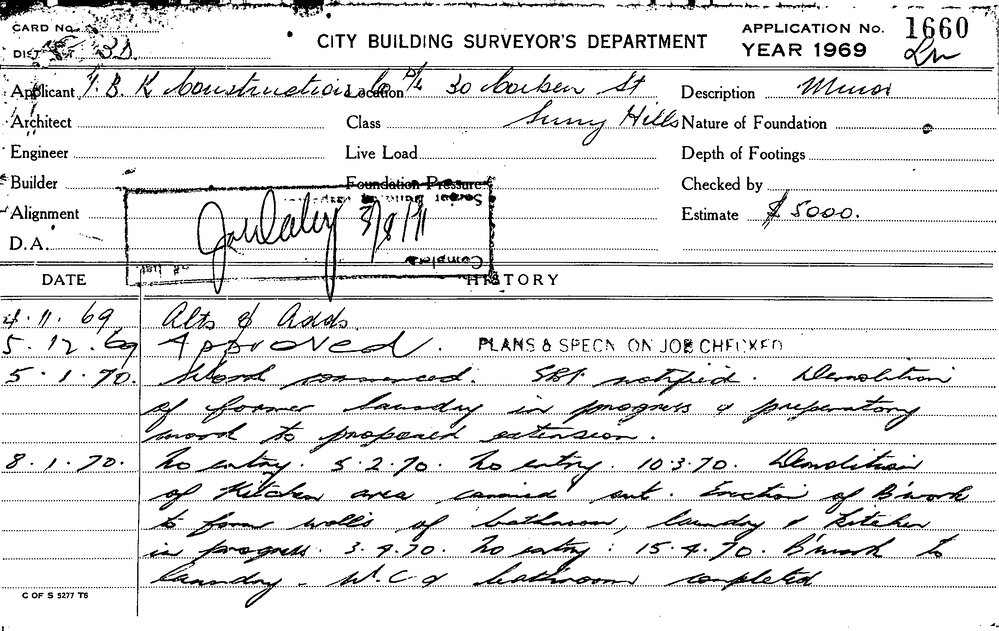 CARD No.
DIST. 3D.
CITY BUILDING SURVEYOR'S DEPARTMENT
APPLICATION No. 1660
YEAR 1969
Applicant B. K Constructions Co P/L
Location 30 St
Surry Hills
Description Minor
Architect
Class
Nature of Foundation
Engineer
Live Load
Depth of Footings
Builder
Foundation Pressure
Checked by
Alignment
Estimate $5000.
D.A.
3/8/71
Complete
DATE
HISTORY
4.11.69 Alts & Adds.
5.12.69 Approved. PLANS & SPECN ON JOB CHECKED
5.1.70. Work commenced. notified. Demolition
of former laundry in progress & preparatory
work to proposed extension.
8.1.70. No entry. 5.2.70. No entry. 10.3.70. Demolition
of Kitchen area carried out. Erection of B'work
to form walls of bathroom, laundry & kitchen
in progress. 3.4.70. No entry: 15.4.70. B'work to
laundry - W.C & bathroom completed
C OF S 5277 T6